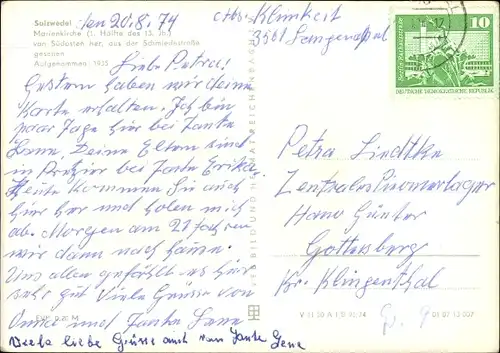 Salzwedel den 20.8.74
Marienkirche (1. Hälfte des 13. Jh.)
von Südosten her, aus der Schmiedestraße
gesehen
Aufgenommen: 1935
Liebe Petra!
Gestern haben wir deine
Karte erhalten. Ich bin
paar Tage hier bei Tante
Lene. Deine Eltern sind
in bei Tante Erika.
Heute kommen Sie auch
hier her und holen mich
ab. Morgen am 21 fahren
wir dann nach hause.
Uns allen gefählt es hir
sehr gut Viele Grüsse von
Omi und Tante Lene
Viele liebe Grüsse auch von Tante Lene
EVP 0,20 M
VEB BILD UND HEIMAT REICHENBACH
Abs. Klinkeit
3561 Langenapel
10
Berlin Rathausstraße
DEUTSCHE DEMOKRATISCHE REPUBLIK
Petra Liedtke
Zentralespionierlager
Hano Günter
Gottesberg
Kr. Klingenthal
V 11 50 A 1/B 81/74
01 07 13 007